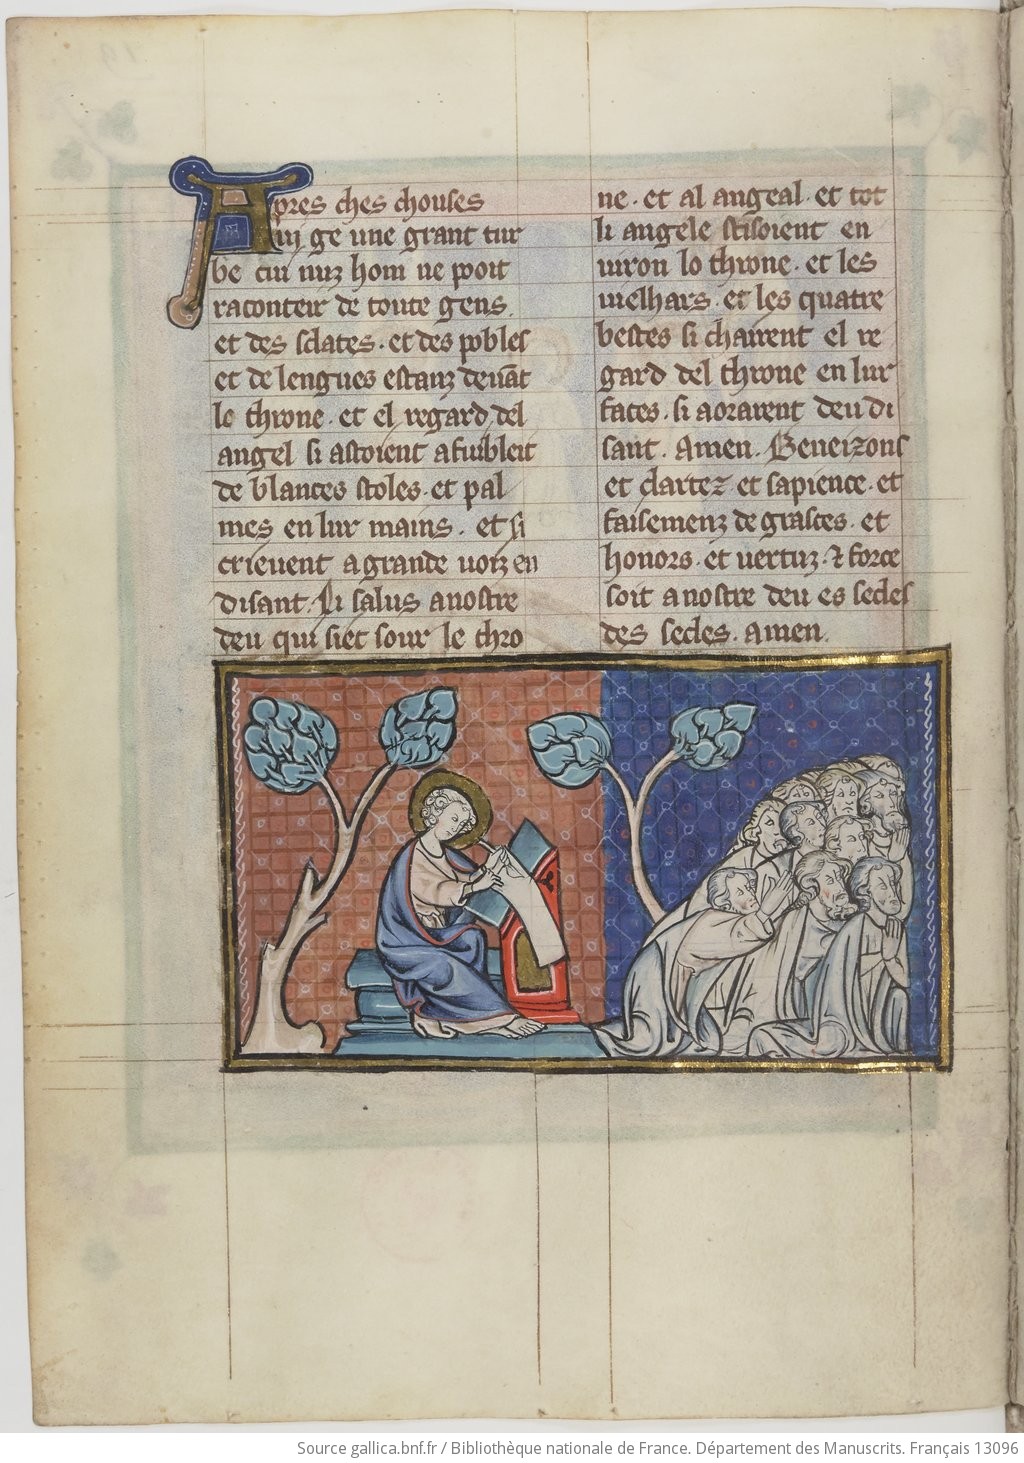 Apres ches chouses
vi ge une grant tur
be cui nuz hom ne poit
raconteir de toute gens.
et des sclates. et des pobles
et de lengues estanz devāt
lo throne. et el regard del
angel si astoient afuibleit
de blances stoles. et pal
mes en lur mains. et si
crievent a grande voiz en
disant. Li salus a nostre
deu qui siet sour le thro
ne. et al angeal. et tot
li angele stisoient en
viron lo throne. et les
vielhars. et les quatre
bestes si chairent el re
gard del throne en lur
faces. si aorarent deu di
sant. Amen. Beneizons
et clartez et sapience. et
faisemenz de grasces. et
honors. et vertuz. ⁊ force
soit a nostre deu es secles
des secles. amen.
Source gallica.bnf.fr / Bibliothèque nationale de France. Département des Manuscrits. Français 13096